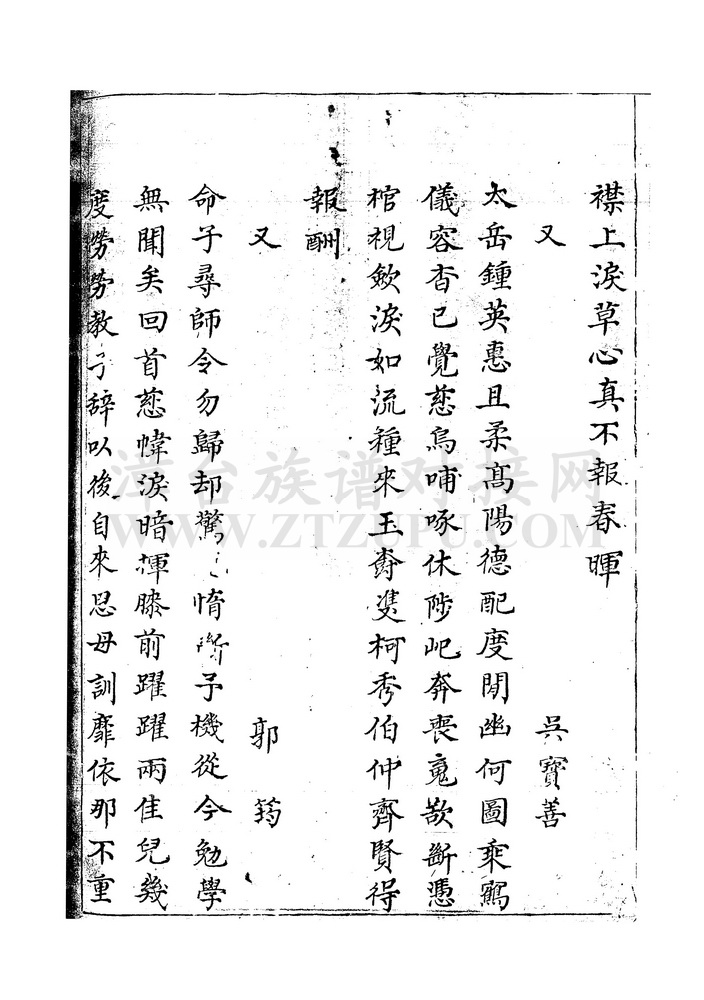 襟上淚草心真不報春暉
又 吳寶善
太岳鍾英惠且柔髙陽德配度閒幽何圖乘鶴
儀容杳已覺慈烏哺啄休陟屺奔喪寃欷斷憑
棺視歛淚如流種來玉樹雙柯秀伯仲齊賢得
報酬
又 郭筠
命子尋師令勿歸却驚惰斷予機從今勉學
無聞矣回首慈幃淚暗揮膝前躍躍兩佳兒幾
度勞勞教子辭以後自來思母訓靡依那不重
漳台族谱对接网
WWW.ZTZUPU.COM